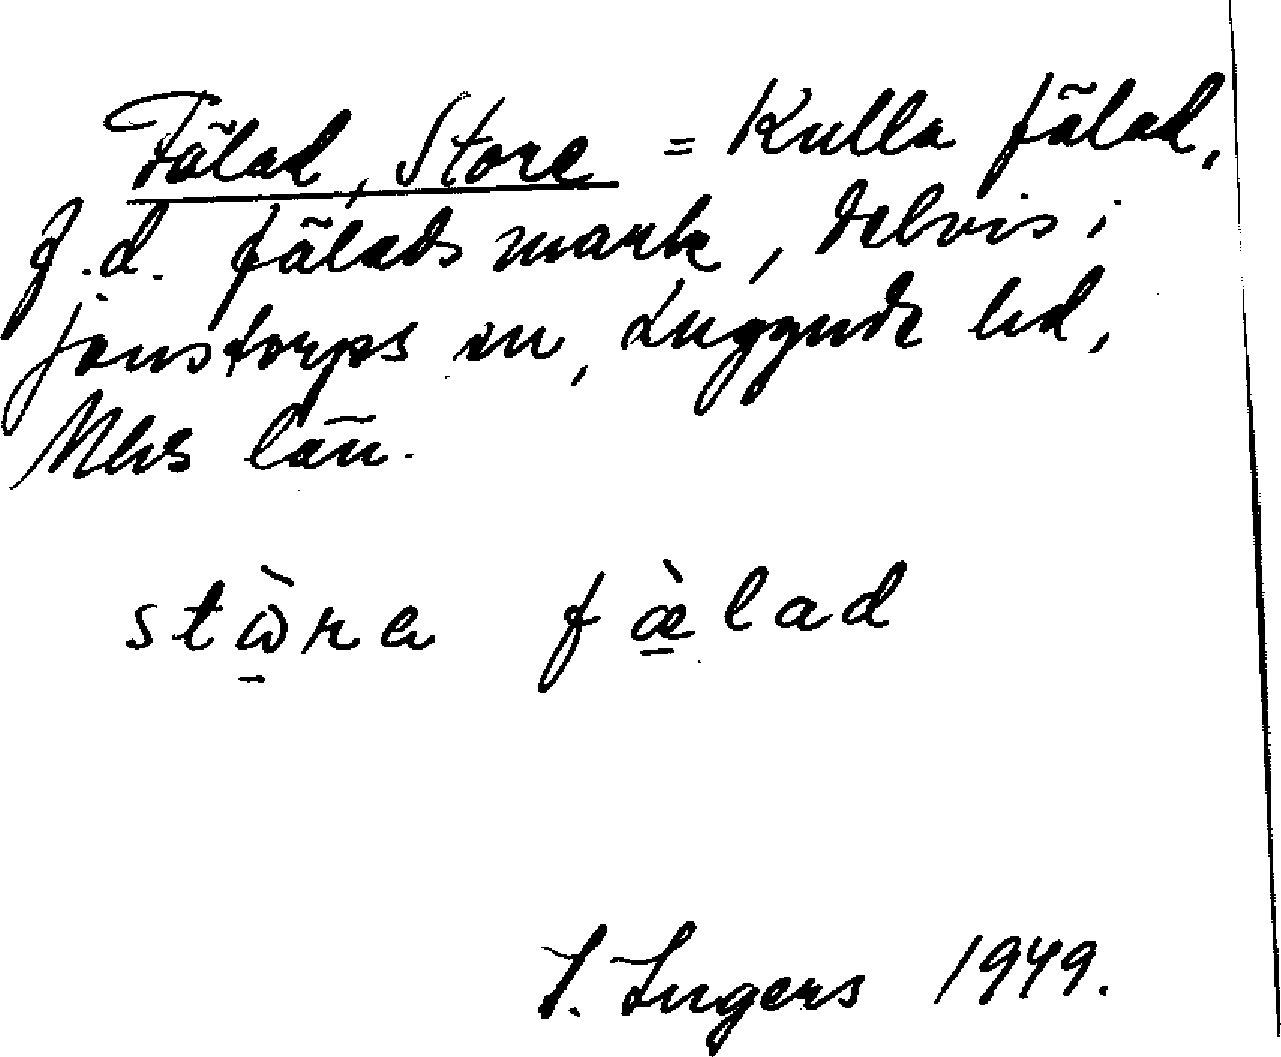 Fälad, Store = Kulla fälad,
f.d. fälads mark, delvis i
Jonstorps sn, Luggude hd,
Mhs län.
stὼ̱ra fæ̱̀lad
I. Ingers 1949.